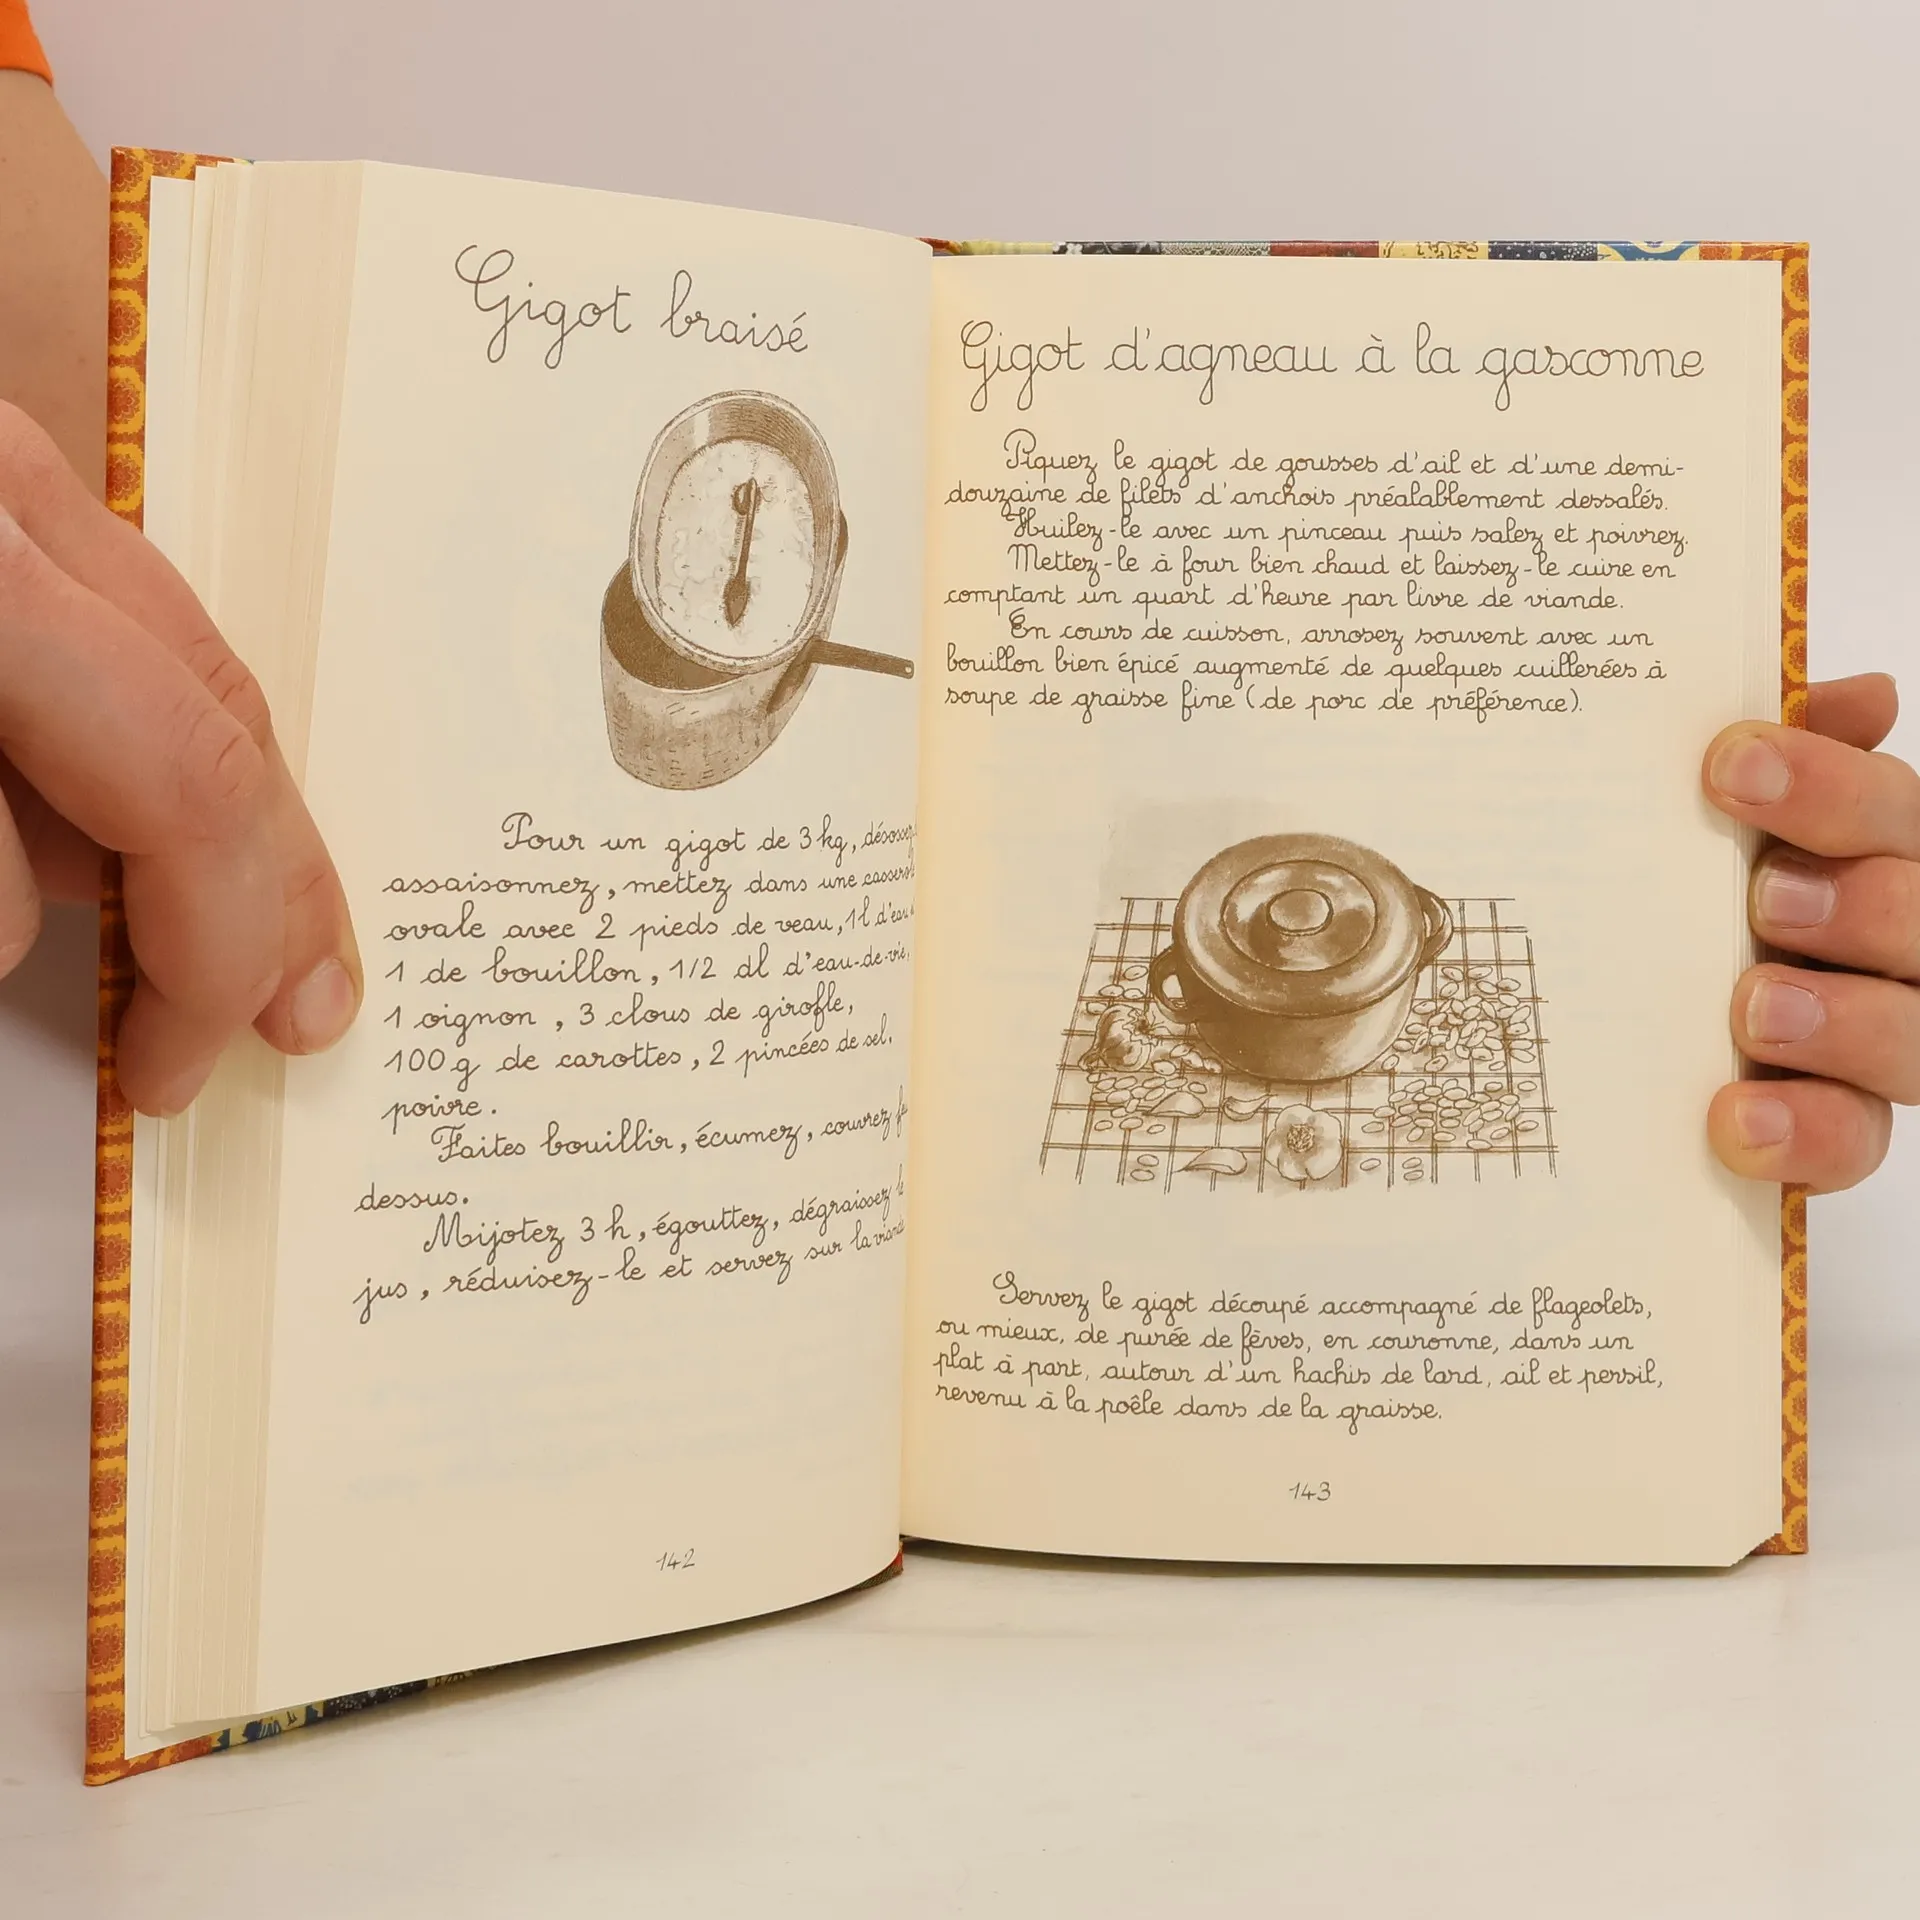 Gigot braisé
Pour un gigot de 3 kg, désossez
assaisonnez, mettez dans une
ovale avec 2 pieds de veau, 1 l d'eau
1 de bouillon, 1/2 dl d'eau-de-vie,
1 oignon, 3 clous de girofle,
100 g de carottes, 2 pincées de sel,
poivre.
Faites bouillir, écumez, couvrez
dessus.
Mijotez 3 h, égouttez, dégraissez le
jus, réduisez-le et servez sur la viande
142
Gigot d'agneau à la gasconne
Piquez le gigot de gousses d'ail et d'une demi-
douzaine de filets d'anchois préalablement dessalés.
Huilez-le avec un pinceau puis salez et poivrez.
Mettez-le à four bien chaud et laissez-le cuire en
comptant un quart d'heure par livre de viande.
En cours de cuisson, arrosez souvent avec un
bouillon bien épicé augmenté de quelques cuillerées à
soupe de graisse fine (de porc de préférence).
Servez le gigot découpé accompagné de flageolets,
ou mieux, de purée de fèves, en couronne, dans un
plat à part, autour d'un hachis de lard, ail et persil,
revenu à la poêle dans de la graisse.
143